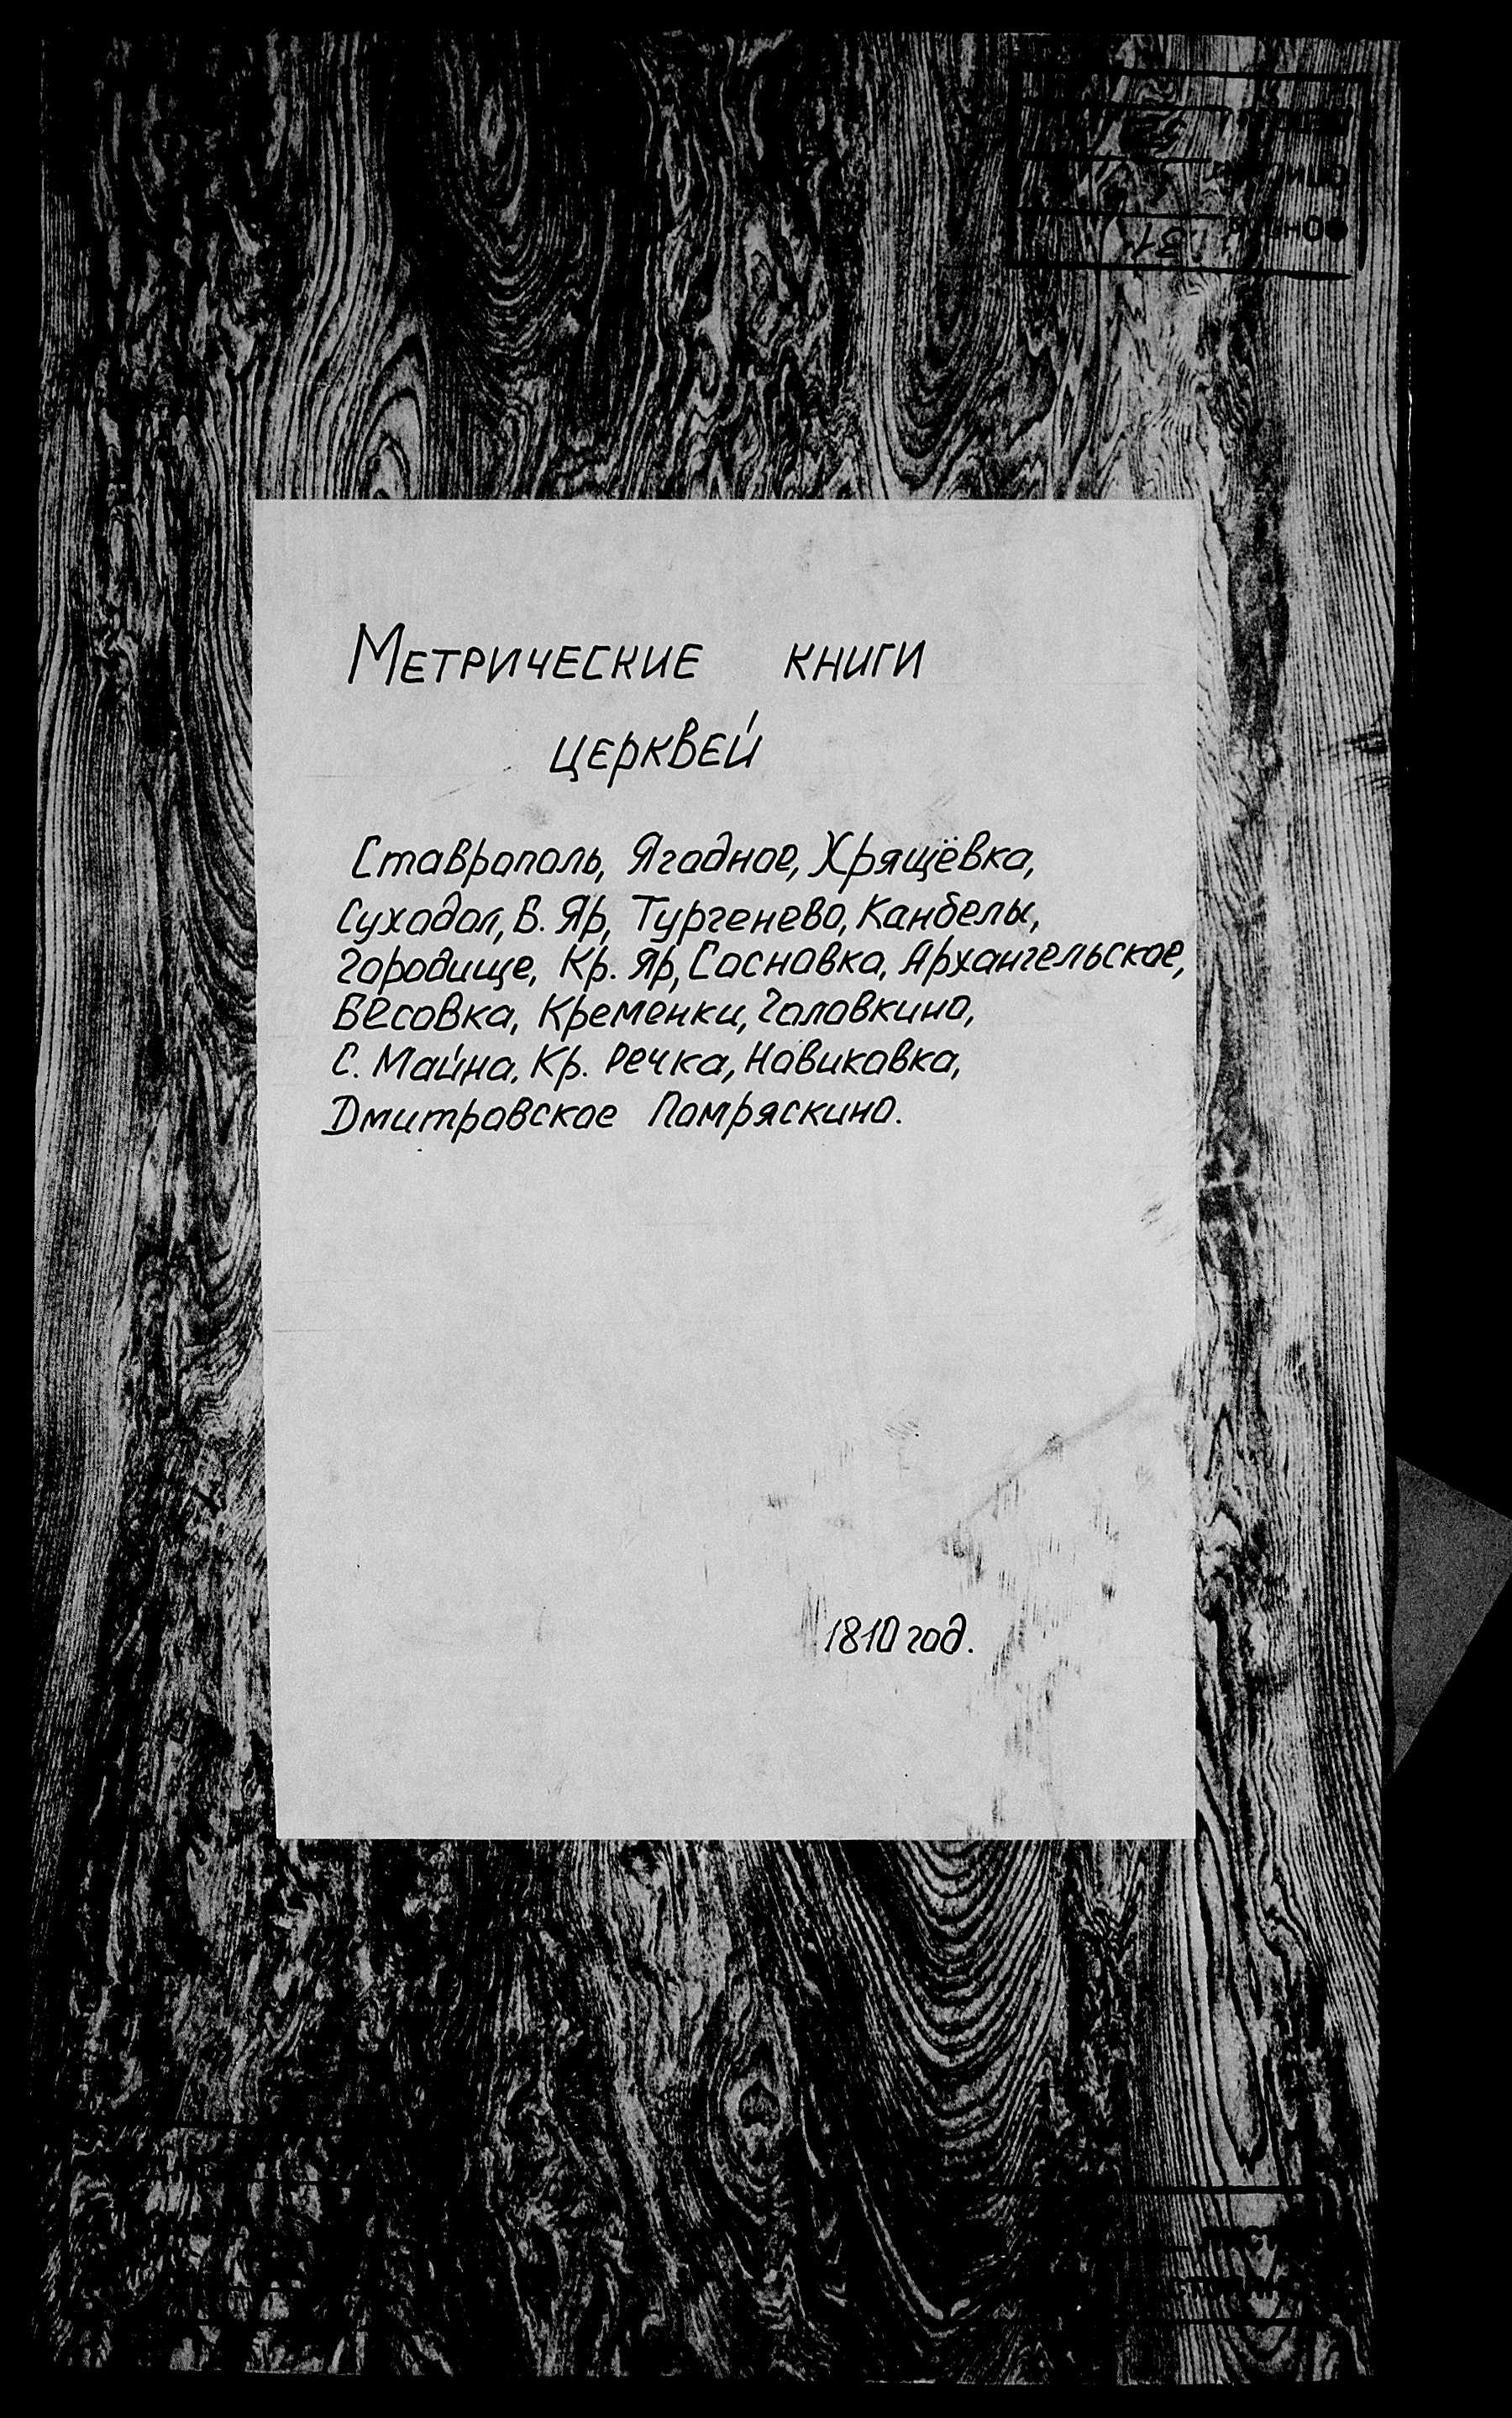 Метрические книги
церквей
Ставрополь, Ягодное, Хрящёвка,
Суходол, Б. Яр, Тургенево, Канбелы,
Городище, Кр. Яр, Сосновка, Архангельское,
Бесовка, Кременки, Головкино,
С. Майна, Кр. Речка, Новиковка,
Дмитровское Помряскино.
1810 год.